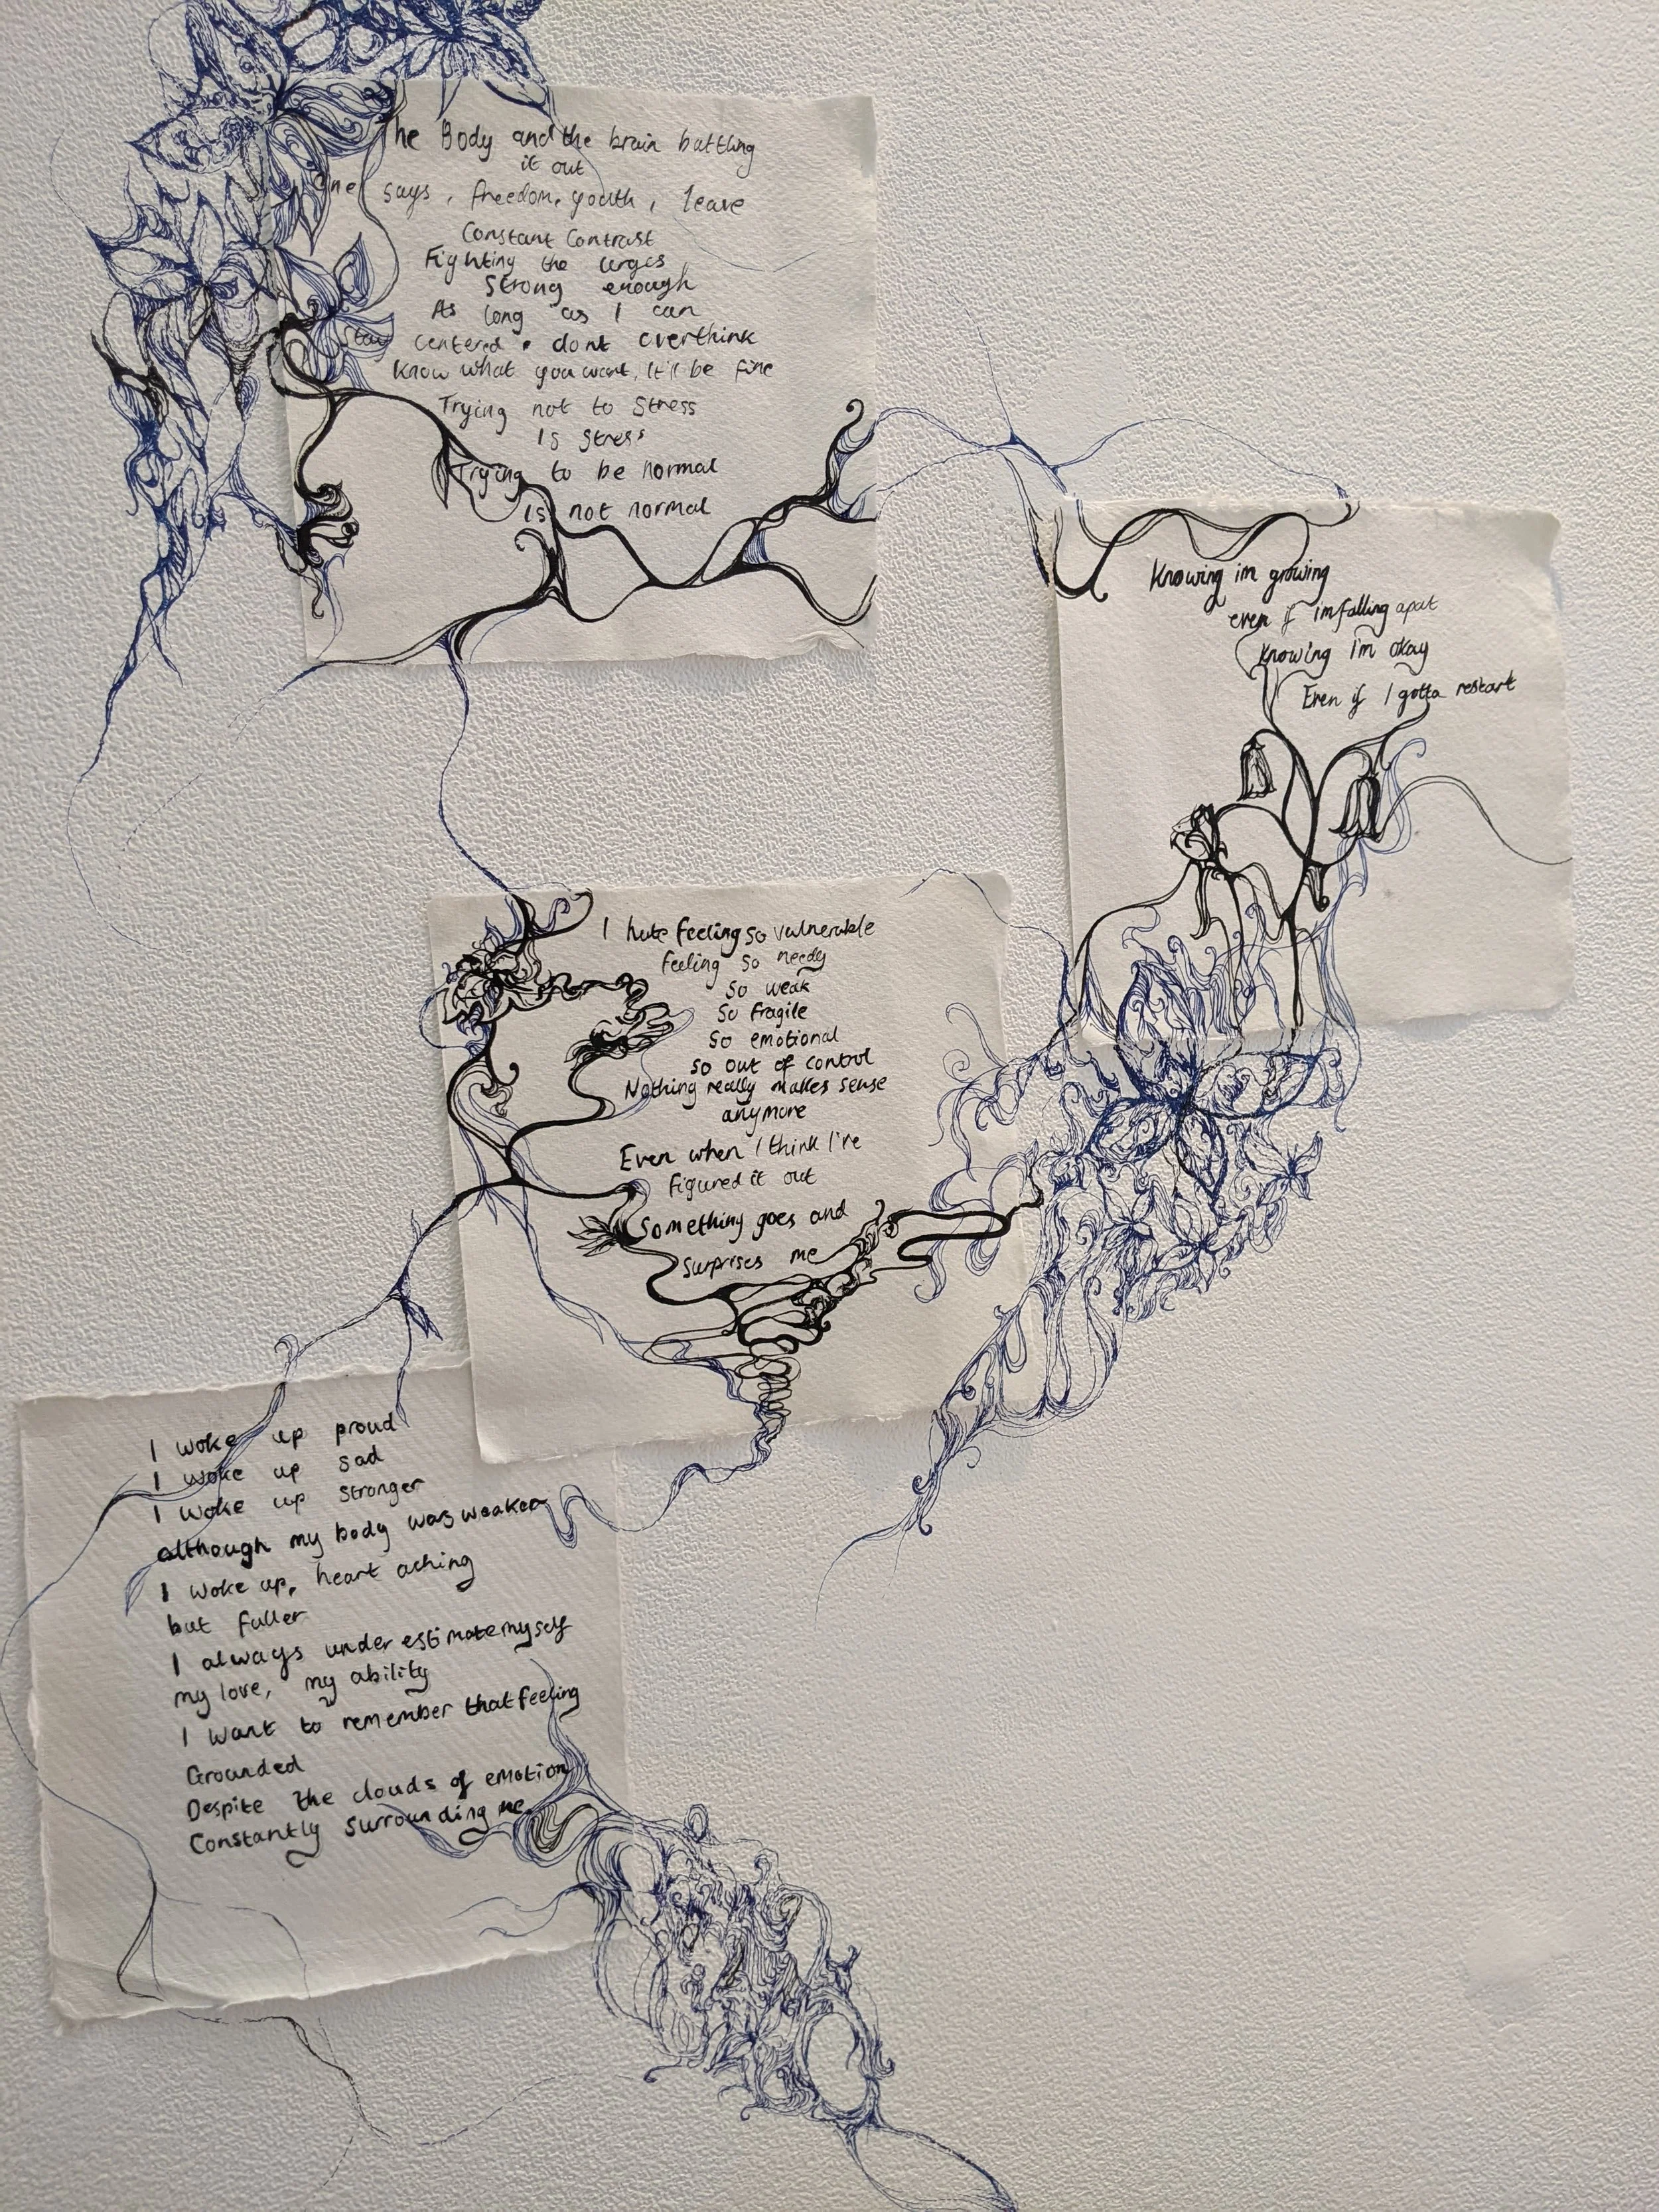 The Body and the brain battling
it out
One says, freedom, youth, leave
Constant Contrast
Fighting the urges
Strong enough
As long as I can
Stay centered. dont overthink
Know what you want, It'll be fine
Trying not to Stress
Is stress
Trying to be normal
Is not normal
Knowing im growing
even if im falling apart
Knowing i'm okay
Even if I gotta restart
I hate feeling so vulnerable
feeling so needy
so weak
So fragile
So emotional
so out of control
Nothing really makes sense
anymore
Even when I think I've
figured it out
Something goes and
surprises me
I woke up proud
I woke up sad
I woke up stronger
although my body was weaker
I woke up, heart aching
but fuller
I always underestimate myself
my love, my ability
I want to remember that feeling
Grounded
Despite the clouds of emotion
Constantly surrounding me